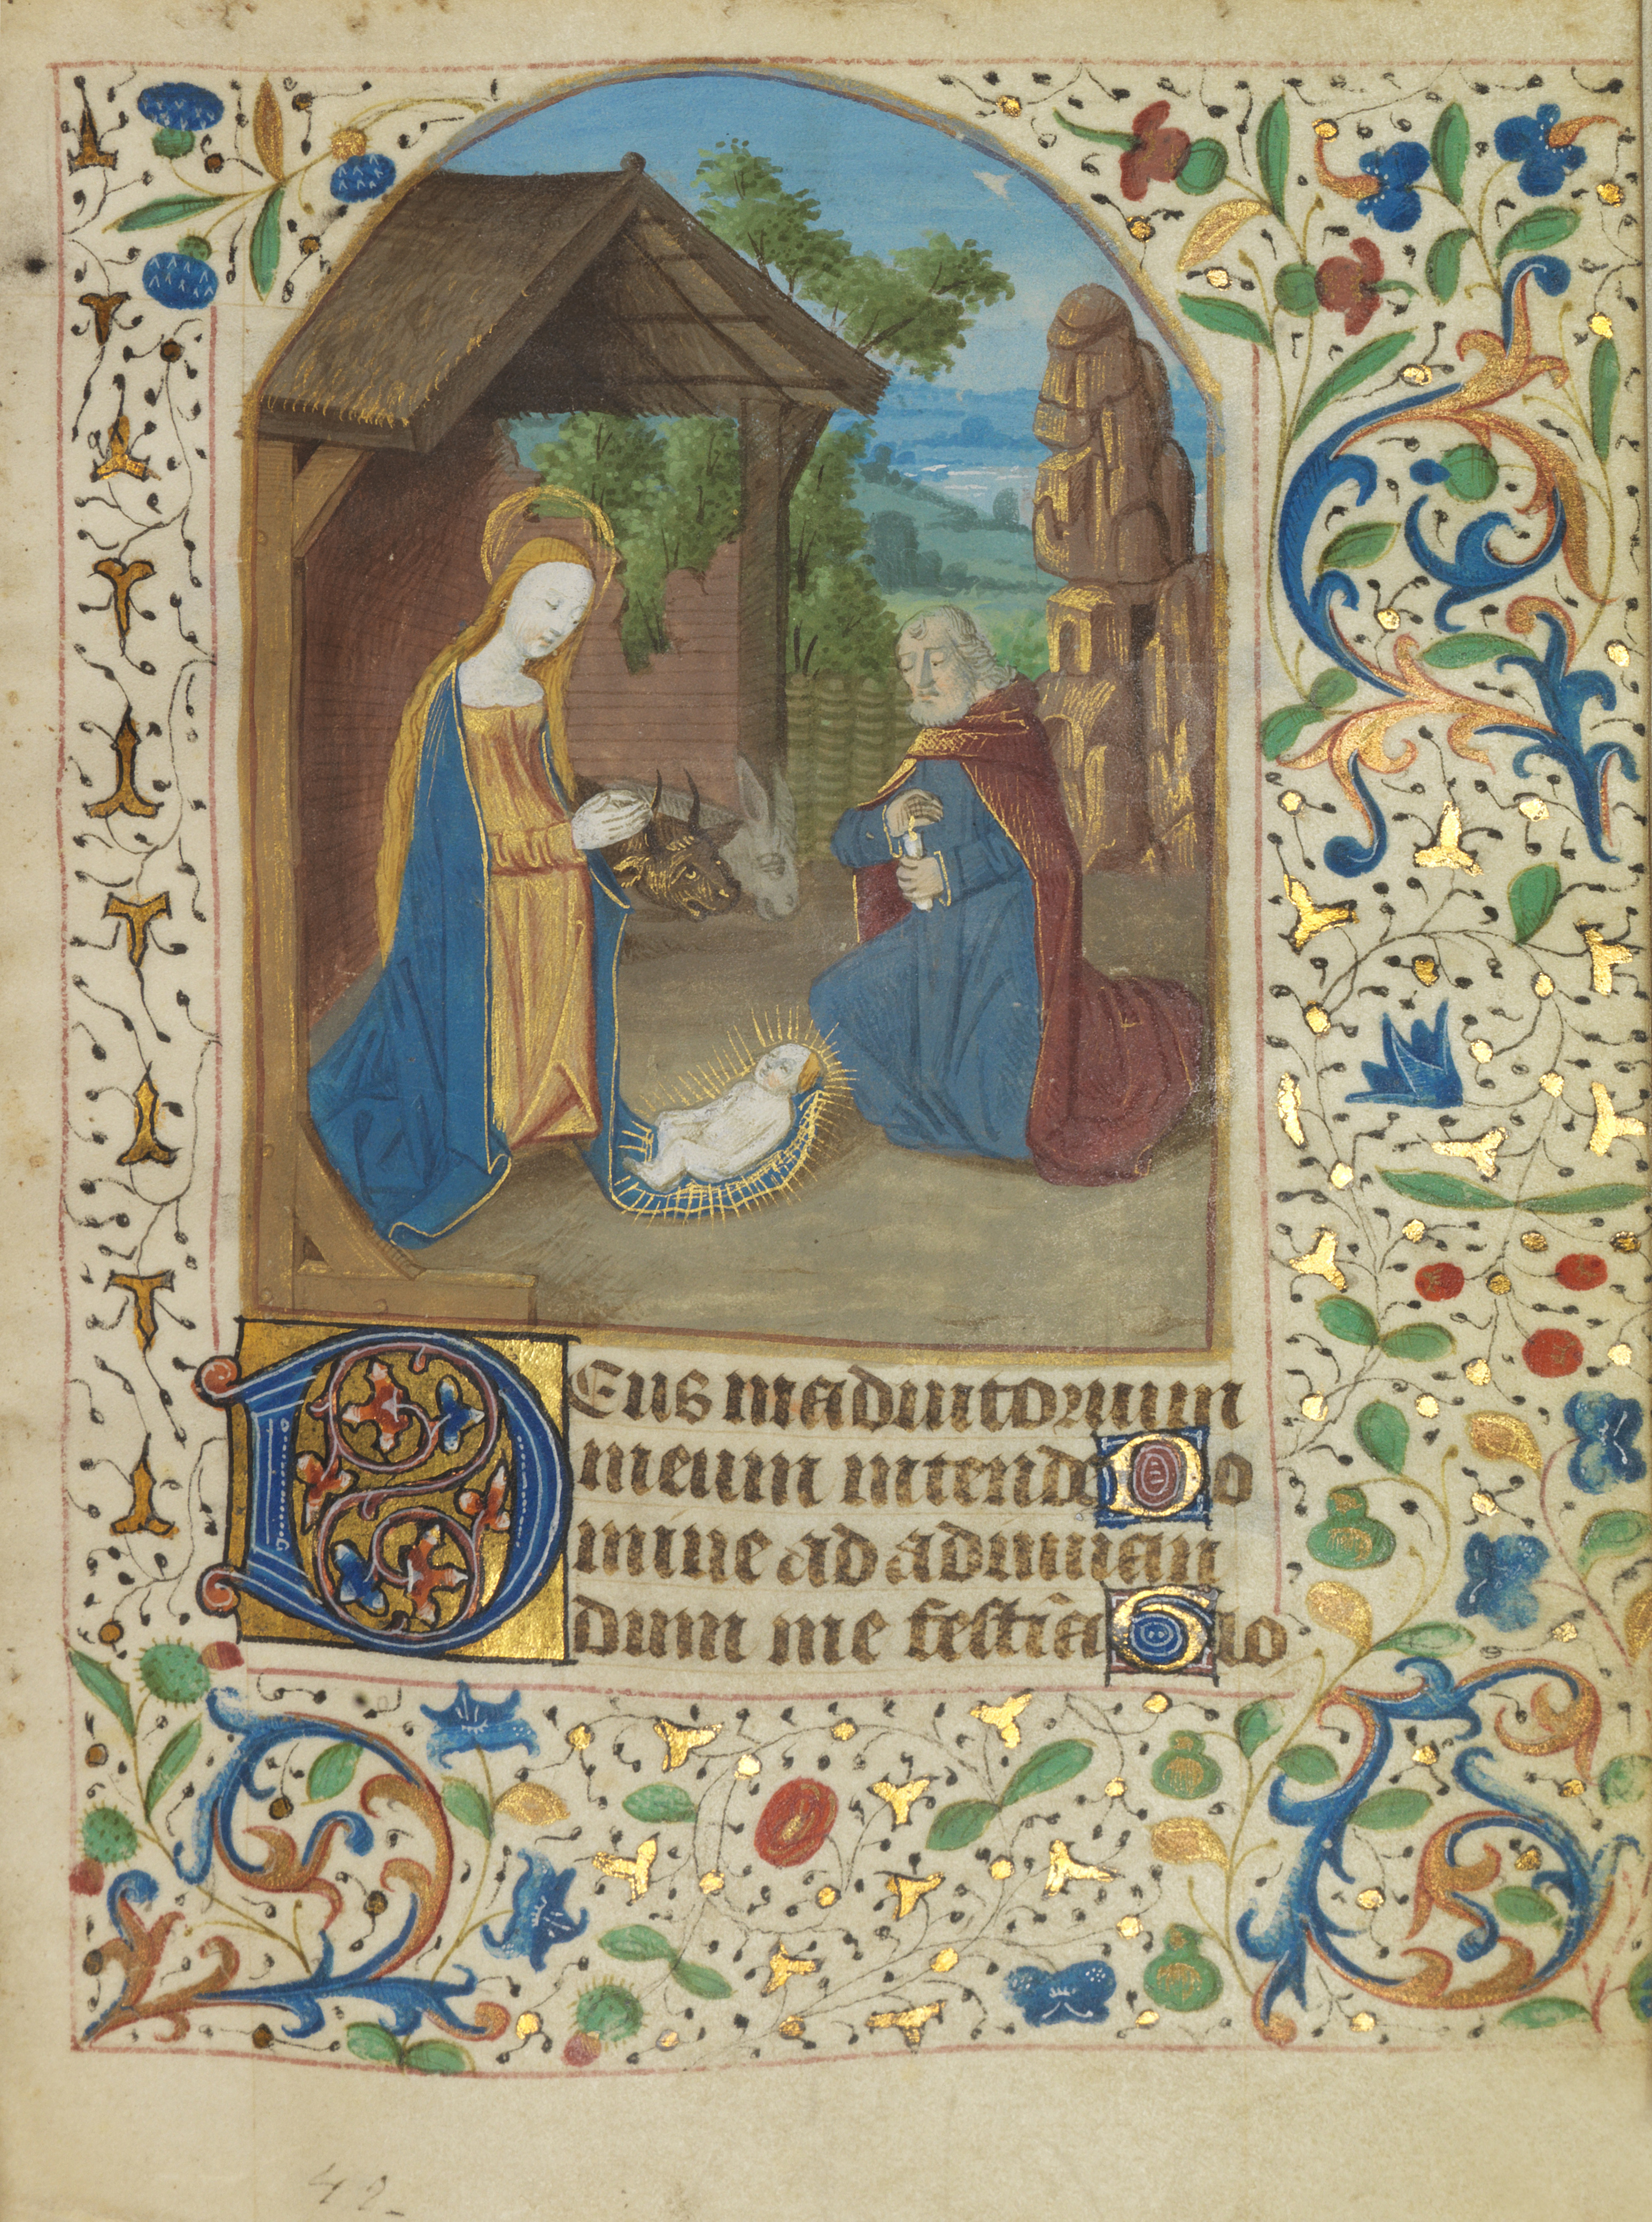 Deus in adiutorium
meum intende Do
mine ad adiuuan
dum me festina Glo
42